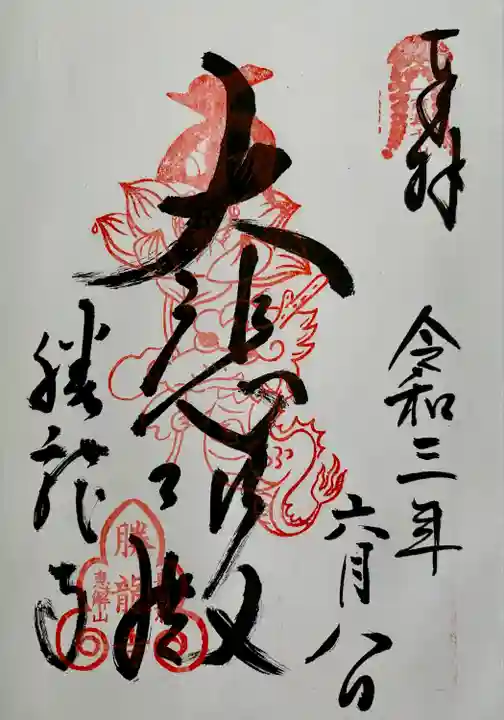 奉拝
令和三年
六月八日
大悲殿
勝龍寺
勝龍
恵解山